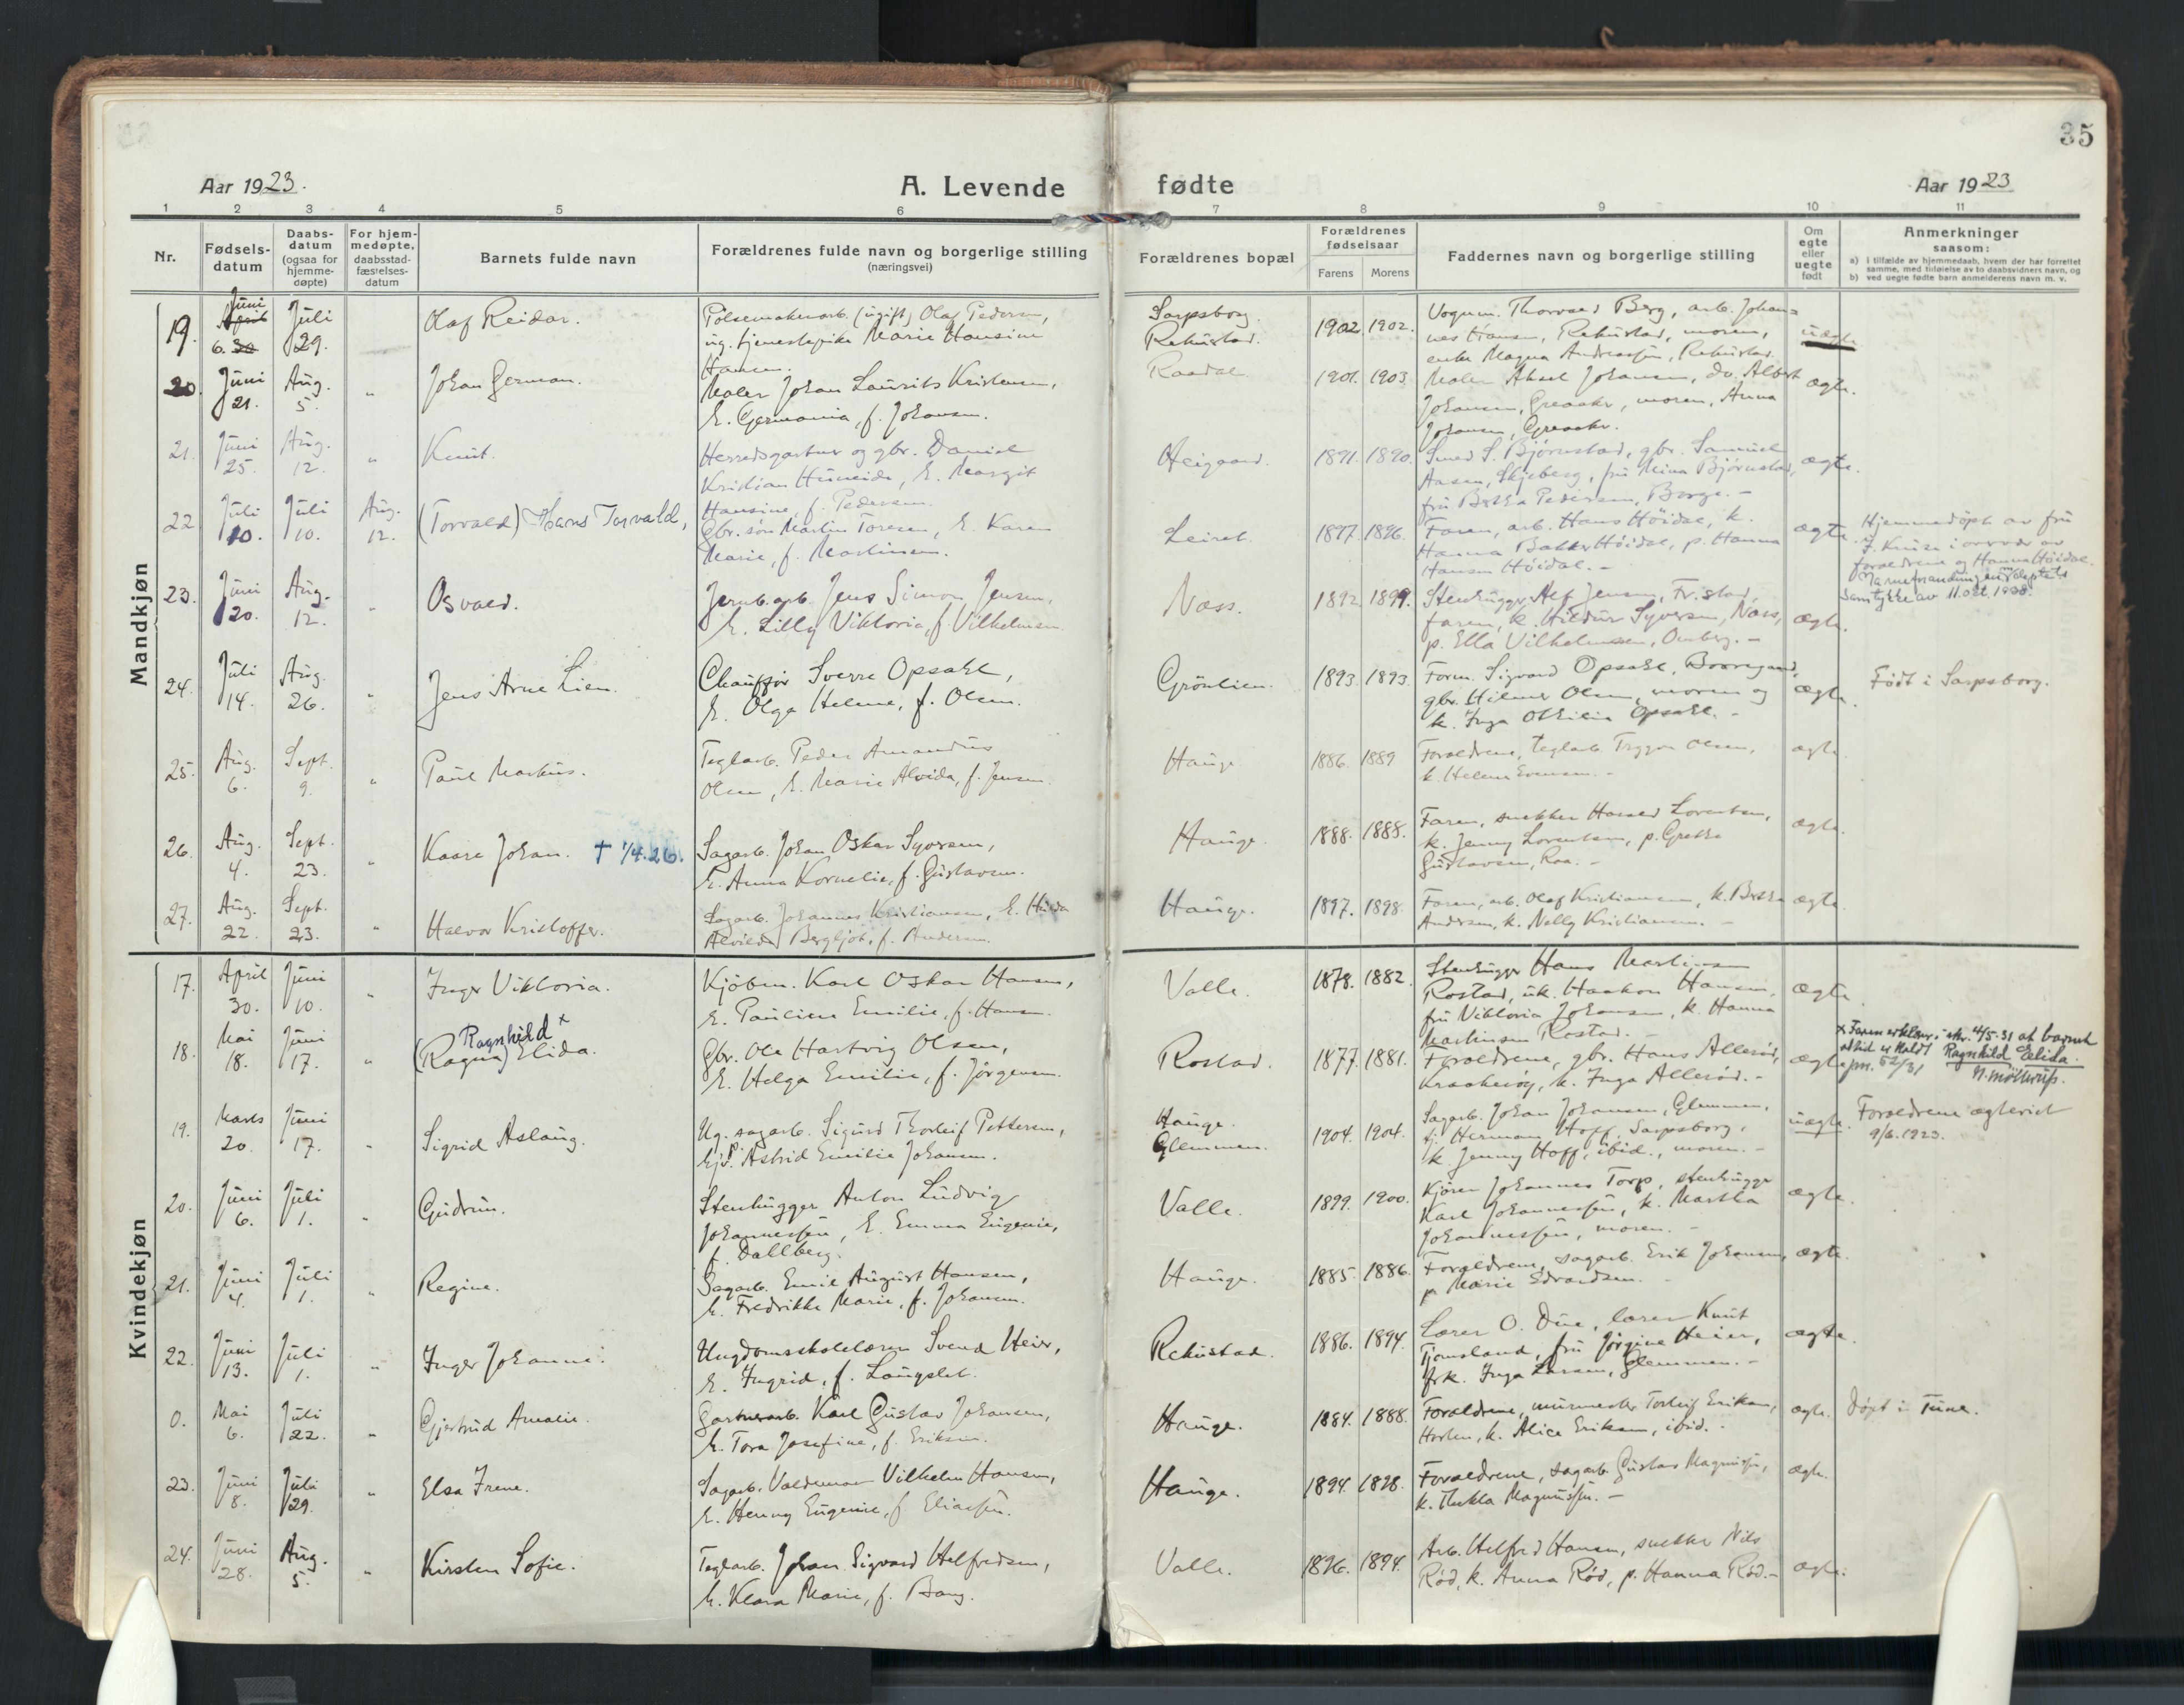 35
Aar 1923.
A. Levende fødte
Aar 1923
1 2 3 4 5 6 7 8 9 10 11
Nr.
Fødsels-
datum
Daabs-
datum
(ogsaa for
hjemme-
døpte)
For hjem-
medøpte,
daabsstad-
fæstelses-
datum
Barnets fulde navn
Forældrenes fulde navn og borgerlige stilling
(næringsvei)
Forældrenes bopæl
Forældrenes
fødselsaar
Farens Morens
Faddernes navn og borgerlige stilling
Om
egte
eller
uegte
født
Anmerkninger
saasom:
a) i tilfælde av hjemmedaab, hvem der har forrettet
samme, med tilføielse av to daabsvidners navn, og
b) ved uegte fødte barn anmelderens navn m. v.
Mandkjøn
19. Juni 6. April 30 Juli 29. Olaf Reidar.
Pølsemakerarb. (ugift) Olaf Pedersen,
ug. tjenestepike Marie Hansine
Hansen.
Sarpsborg
Rekustad.
1902. 1902.
Vognm. Thorvald Berg, arb. Johan=
nes Hansen, Rekustad, moren,
enke Magna Andreassen, Rekustad.
uægte
20. Juni 21. Aug. 5. " Johan German.
Maler Johan Laurits Kristensen,
h. Germania, f. Johansen.
Raadal.
1901. 1903.
Maler Aksel Johansen, do. Albert
Johansen, Greaaker, moren, Anna
Johansen, Greaaker.
ægte.
21. Juni 25. Aug. 12. " Knut.
Herredsgartner og gbr. Daniel
Kristian Huneide, h. Margit
Hansine, f. Pedersen
Heigaard.
1891. 1890.
Smed S. Bjørnstad, gbr. Samuel
Aasen, Skjeberg, fru Mina Bjørnstad,
fru Betha Pedersen, Borge. -
ægte.
22. Juli 10. Juli 10. Aug. 12. (Torvald) Hans Torvald,
Gbr. søn Martin Toresen, h. Karen
Marie, f. Martinsen.
Leiret.
1897. 1896.
Faren, arb. Hans Høidal, k.
Hanna Bakke Høidal, p. Hanna
Hansen Høidal. -
ægte.
Hjemmedøpt av fru
J. Kruse i overvær av
forældrene og Hanna Høidal.
samtykke av 11. okt. 1938.
23. Juni 20. Aug. 12. " Osvald.
Jernb.arb. Jens Simon Jensen,
h. Lilly Viktoria, f. Vilhelmsen
Næss.
1892. 1899.
Stenhugger Alf Jensen, Fr.stad,
faren, k. Hildur Syversen, Næss,
p. Ella Vilhelmsen, Omberg. -
ægte.
24. Juli 14. Aug. 26. " Jens Arne Lien.
Chauffør Sverre Opsahl,
h. Olga Helene, f. Olsen.
Grønlien.
1893. 1893.
Form. Sigvard Opsahl, Borregaard,
gbr. Hilmer Olsen, moren og
k. Inga Othilie Opsahl. -
ægte.
Født i Sarpsborg.
25. Aug. 6. Sept. 9. " Paul Markus.
Teglarb. Peder Amandus
Olsen, h. Marie Alvida, f. Jensen
Hauge
1886. 1889
Forældrene, teglarb. Trygve Olsen,
k. Helene Evensen. -
ægte
26. Aug. 4. Sept. 23. " Kaare Johan. † 1/4.26.
Sagarb. Johan Oskar Syversen,
h. Anna Kornelie, f. Gustavsen.
Hauge.
1888. 1888.
Faren, snekker Harald Lorentsen,
k. Jenny Lorentsen, p. Grethe
Gustavsen, Raa. -
ægte.
27. Aug. 22. Sept. 23. " Halvor Kristoffer.
Sagarb. Johannes Kristiansen, h. Hulda
Alvilda Bergljot, f. Andersen.
Hauge.
1897. 1898.
Faren, arb. Olaf Kristiansen, k. Betha
Andersen, k. Nelly Kristiansen. -
ægte.
Kvindekjøn
17. April 30. Juni 10. " Inger Viktoria.
Kjøbm. Karl Oskar Hansen,
h. Pauline Emilie, f. Hansen.
Valle.
1878. 1882.
Stenhugger Hans Martinsen
Rostad, uk. Haakon Hansen,
fru Viktoria Johansen, k. Hanna
Martinsen Rostad. -
ægte.
18. Mai 18. Juni 17. " (Ragna) Ragnhild x Elida.
Gbr. Ole Hartvig Olsen,
h. Helga Emilie, f. Jørgensen.
Rostad.
1877. 1881.
Forældrene, gbr. Hans Allerød,
Kraakerøy, k. Inga Allerød. -
ægte
x Faren erklærer i skr. 4/5-31 at barnet
altid er kaldt Ragnhild Elida.
jnr. 52/31
19. Marts 20. Juni 17. " Sigrid Aslaug.
Ug. sagarb. Sigurd Thorleif Pettersen,
tj.p. Astrid Emilie Johansen.
Hauge.
Glemmen.
1904. 1904.
Sagarb. Johan Johansen, Glemmen,
tj. Herman Hoff, Sarpsborg,
k. Jenny Hoff, ibid., moren. -
uægte.
Forældrene ægteviet
9/6.1923.
20. Juni 6. Juli 1. " Gudrun.
Stenhugger Anton Ludvig
Johannessen, h. Emma Eugenie,
f. Dallberg.
Valle.
1899. 1900.
Kjører Johannes Torp, stenhugger
Karl Johannessen, k. Martha
Johannessen, moren. -
ægte.
21. Juni 4. Juli 1. " Regine.
Sagarb. Emil August Hansen,
h. Fredrikke Marie, f. Johansen.
Hauge.
1885. 1886.
Forældrene, sagarb. Erik Johansen,
p. Marie Edvardsen. -
ægte.
22. Juni 13. Juli 1. " Inger Johanne.
Ungdomsskolelærer Svend Heier,
h. Ingrid, f. Laugslet.
Rekustad.
1886. 1894.
Lærer O. Due, lærer Knut
Tjomsland, fru Jørgine Heier,
frk. Inga Larsen, Glemmen. -
ægte.
0. Mai 6. Juli 22. " Gjertrud Amalie.
Gartnerarb. Karl Gustav Johansen,
h. Tora Josefine, f. Eriksen.
Hauge.
1884. 1888.
Forældrene, murmester Torleif Eriksen,
Horten, k. Alice Eriksen, ibid. -
ægte.
Døpt i Tune.
23. Juni 8. Juli 29. " Elsa Irene.
Sagarb. Valdemar Vilhelm Hansen,
h. Henny Eugenie, f. Eliassen.
Hauge.
1894. 1898.
Forældrene, sagarb. Gustav Magnussen,
k. Thekla Magnussen. -
ægte.
24. Juni 28. Aug. 5. " Kirsten Sofie.
Teglarb. Johan Sigvard Helfredsen,
h. Klara Marie, f. Bang.
Valle.
1896. 1894.
Arb. Helfred Hansen, snekker Nils
Rød, k. Anna Rød, p. Hanna Rød. -
ægte.